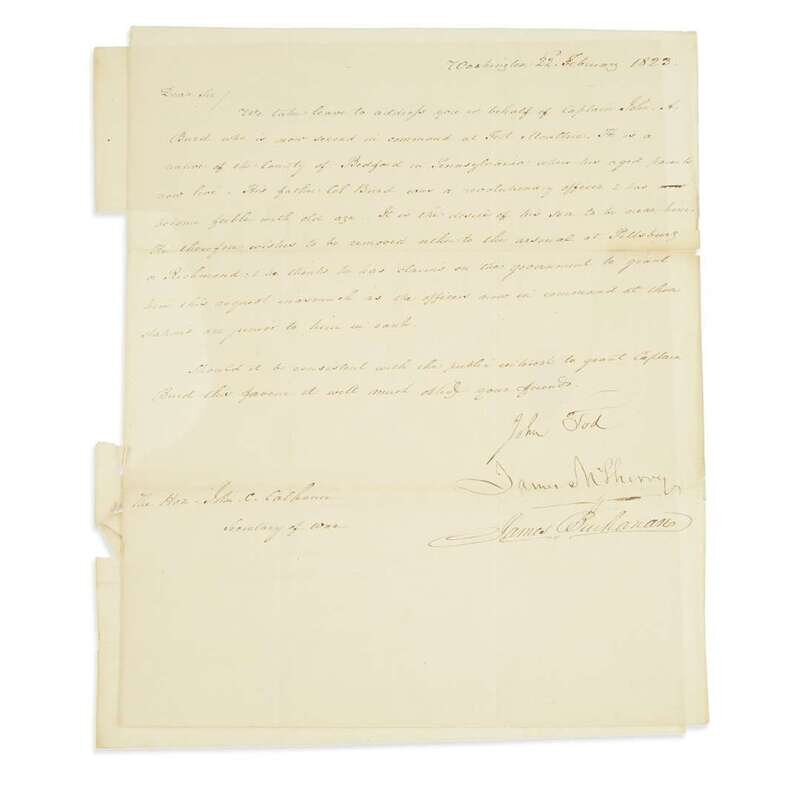 Washington 22d. February 1823.
Dear Sir/
We take leave to address you in behalf of Captain John. A.
Burd who is now second in command at Fort Moultrie. He is a
native of the County of Bedford in Pennsylvania where his aged parents
now live. His father Col Burd was a revolutionary officer & has
become feeble with old age. It is the desire of his son to be near him.
He therefore wishes to be removed either to the arsenal at Pittsburg
or Richmond, & he thinks he has claims on the government to grant
him this request inasmuch as the officers now in command at these
stations are junior to him in rank.
Should it be consistent with the public interest to grant Captain
Burd this favour it will much oblige your friends.
John Tod
James McSherry
James Buchanan
The Hon. John C. Calhoun
Secretary of War